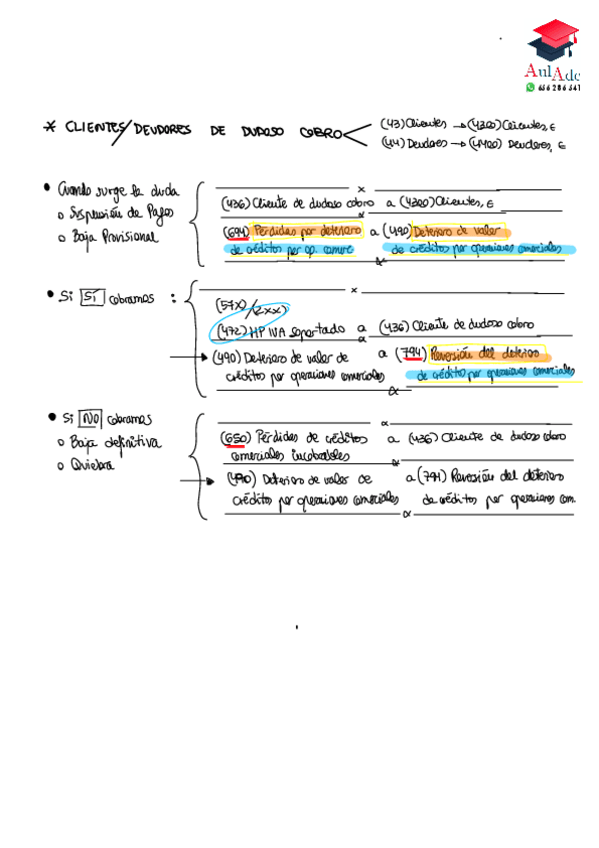 AulAde
656 286 541
* CLIENTES/DEUDORES DE DUDOSO COBRO
(43) Clientes → (4300) Clientes, €
(44) Deudores → (4400) Deudores, €
• Cuando surge la duda
o Suspensión de Pagos
o Baja Provisional
(436) Cliente de dudoso cobro a (4300) Clientes, €
(694) Pérdidas por deterioro a (490) Deterioro de valor
de créditos por op. comerc de créditos por operaciones comerciales
• Si SÍ cobramos :
(57X)/(2XX)
(472) HP IVA soportado a (436) Cliente de dudoso cobro
→ (490) Deterioro de valor de a (794) Reversión del deterioro
créditos por operaciones comerciales de créditos por operaciones comerciales
• Si NO cobramos
o Baja definitiva
o Quiebra
(650) Pérdidas de créditos a (436) Cliente de dudoso cobro
comerciales incobrables
→ (490) Deterioro de valor de a (794) Reversión del deterioro
créditos por operaciones comerciales de créditos por operaciones com.